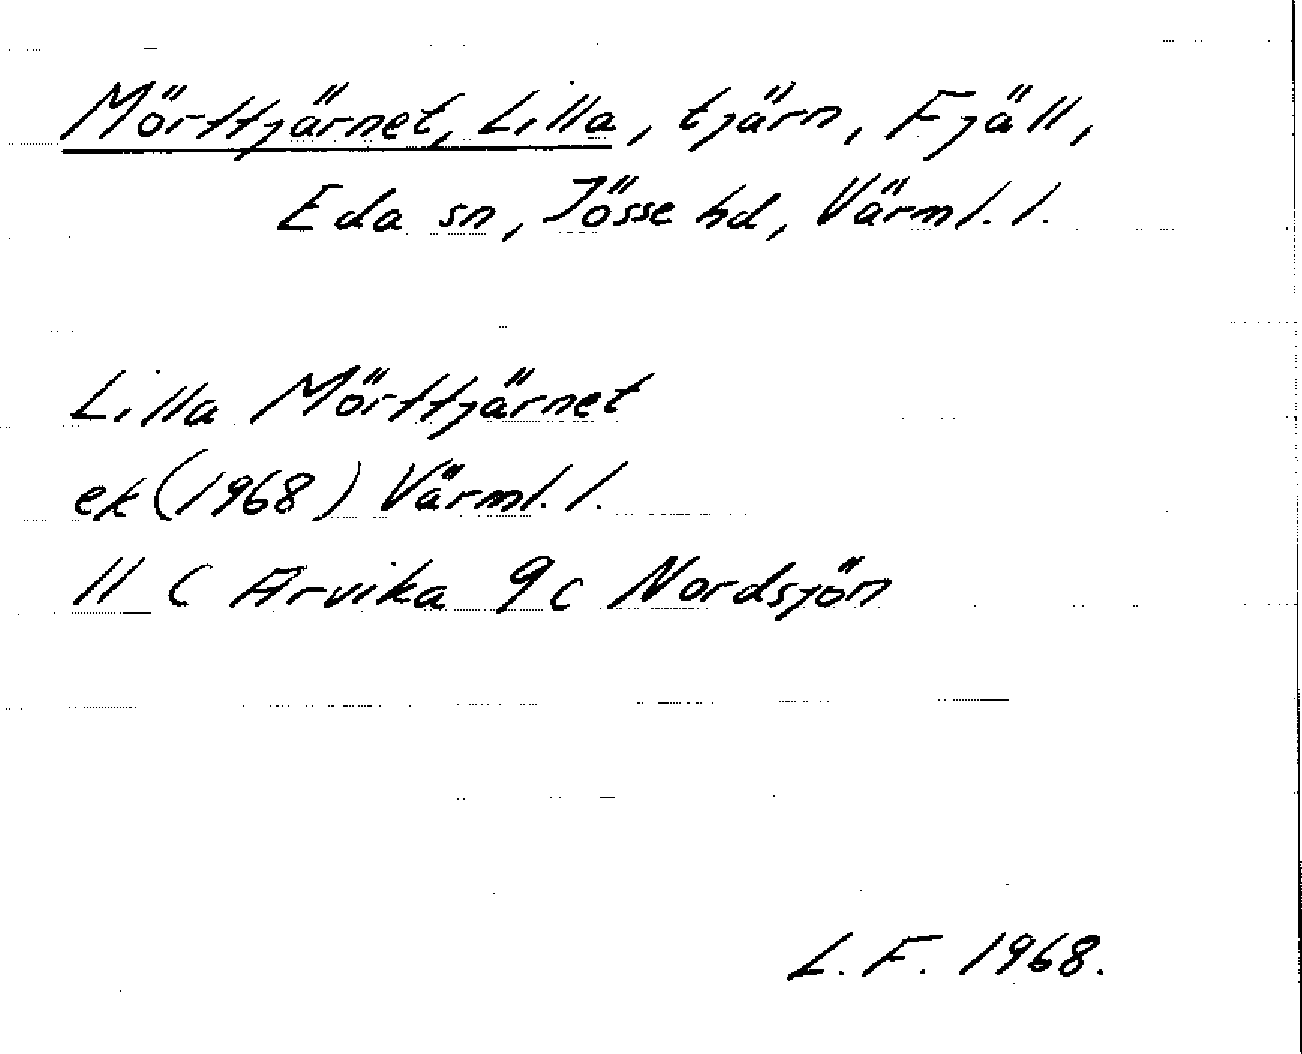 Mörttjärnet, Lilla, tjärn, Fjäll,
Eda sn, Jösse hd, Värml. l.
Lilla Mörttjärnet
ek (1968) Värml. l.
11 C Arvika 9c Nordsjön
L. F. 1968.